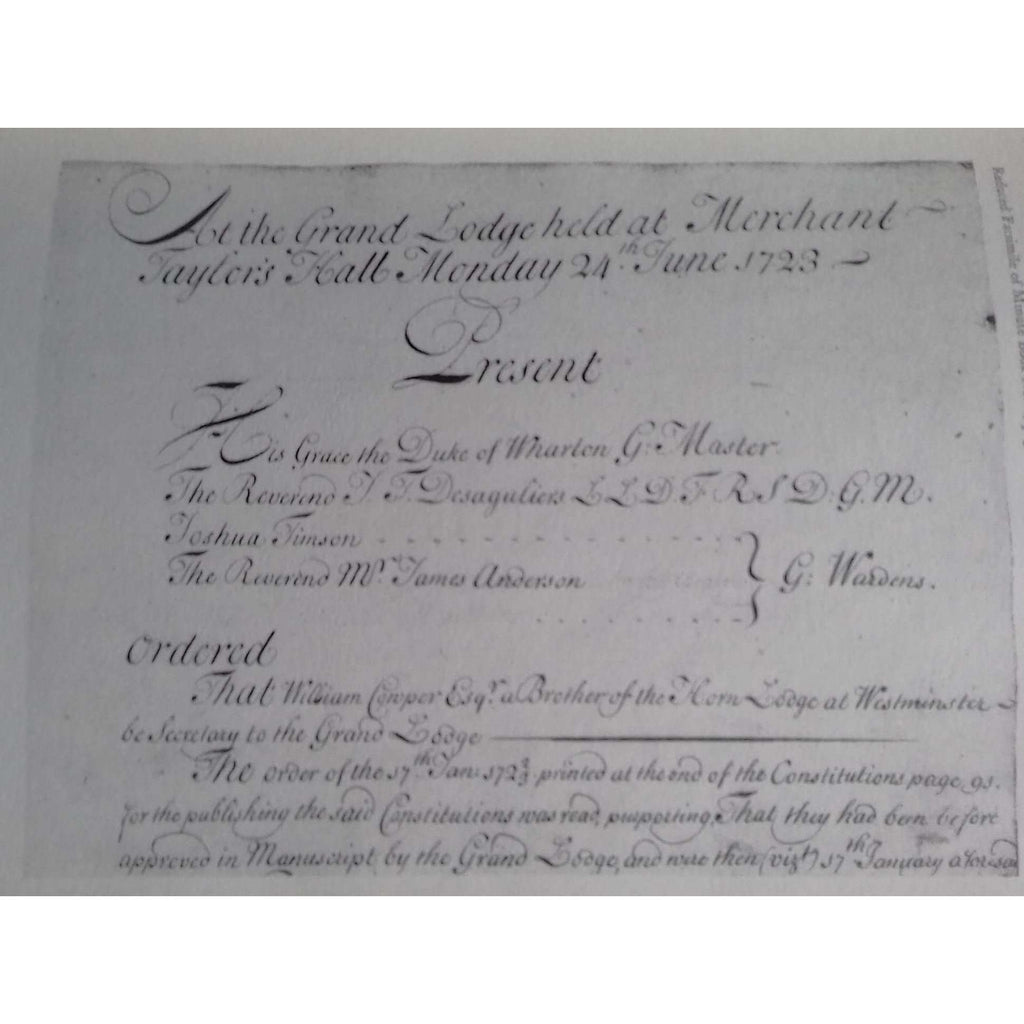 At the Grand Lodge held at Merchant
Taylor's Hall Monday 24th June 1723
Present
His Grace the Duke of Wharton G: Master.
The Reverend J. T. Desaguliers L L D. F R S D: G. M.
Joshua Timson
The Reverend Mr. James Anderson } G: Wardens.
Ordered
That William Cowper Esqr. a Brother of the Horn Lodge at Westminster
be Secretary to the Grand Lodge
The order of the 17th Jan: 172 2/3 printed at the end of the Constitutions page 91.
for the publishing the said Constitutions was read, purporting, That they had been before
approved in Manuscript by the Grand Lodge, and were then (vizt) 17th January aforesaid
Reduced Facsimile of Minute